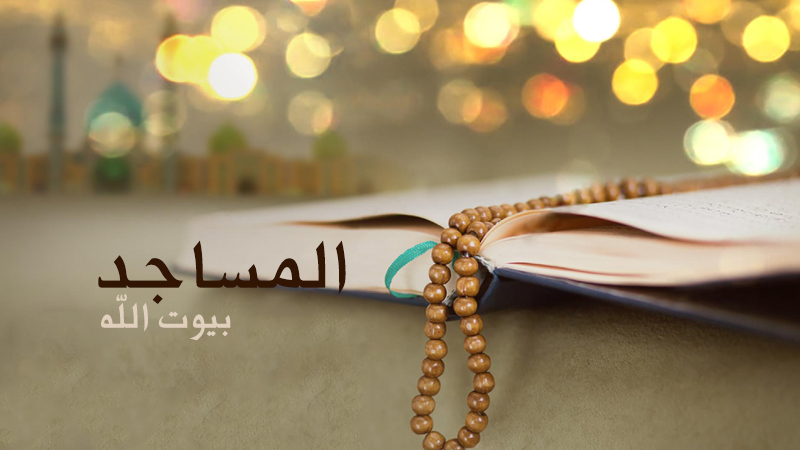 المساجد
بيوت اللّه